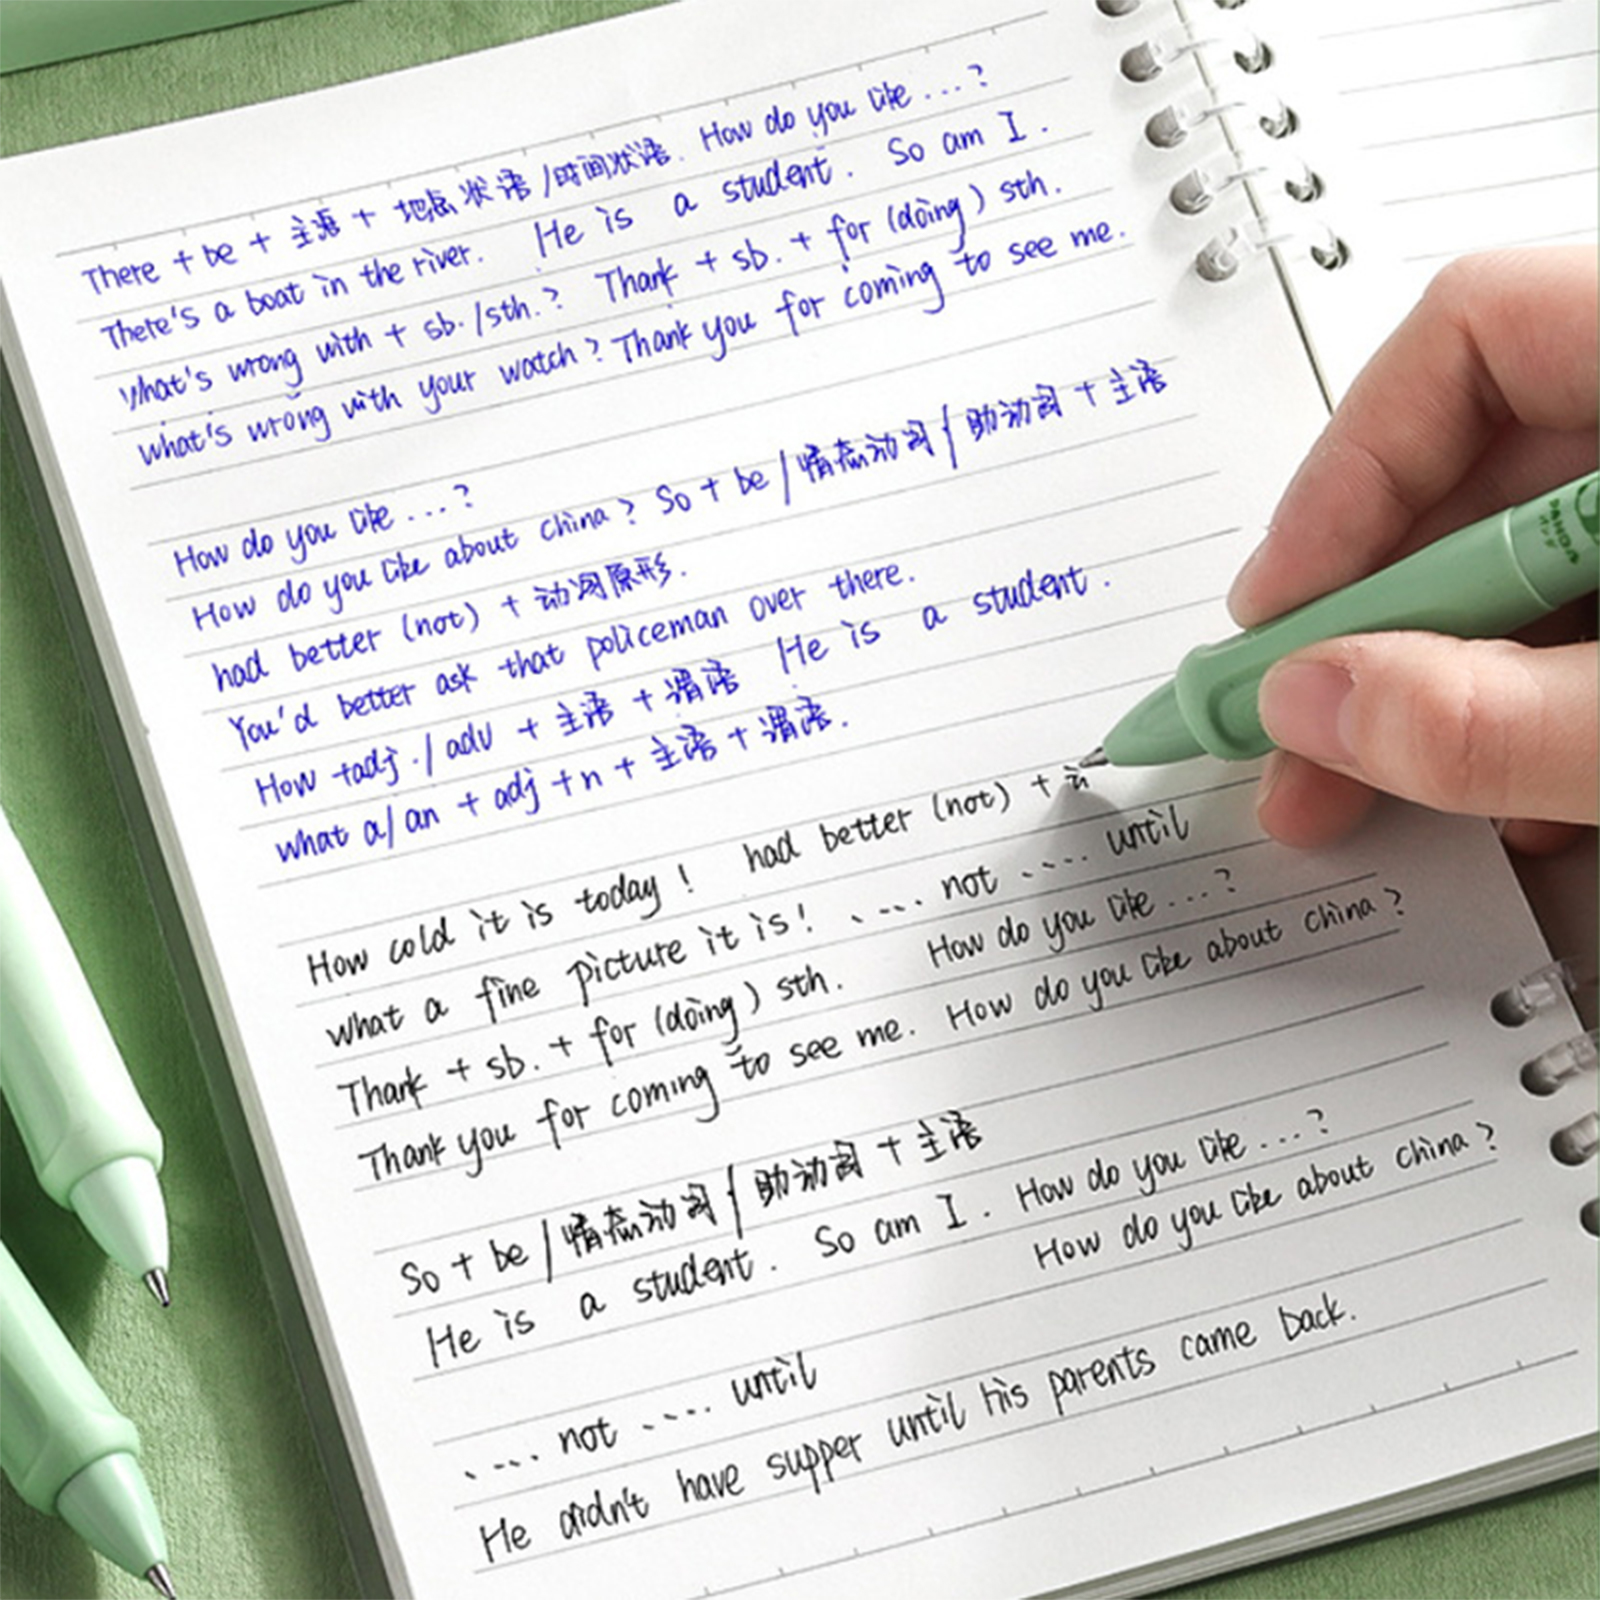 There + be + 主语 + 地点状语 /时间状语. How do you like ...?
There's a boat in the river. He is a student. So am I.
What's wrong with + sb./sth.? Thank + sb. + for (doing) sth.
what's wrong with your watch? Thank you for coming to see me.
How do you like ...?
How do you like about china? So + be / 情态动词 / 助动词 + 主语
had better (not) + 动词原形.
You'd better ask that policeman over there.
How +adj./ adv + 主语 + 谓语 He is a student.
what a/an + adj +n + 主语 + 谓语.
How cold it is today! had better (not) +
what a fine picture it is! .... not .... until
Thank + sb. + for (doing) sth. How do you like ...?
Thank you for coming to see me. How do you like about china?
So + be / 情态动词 / 助动词 + 主语
He is a student. So am I. How do you like ...?
How do you like about china?
.... not .... until
He didn't have supper until his parents came back.